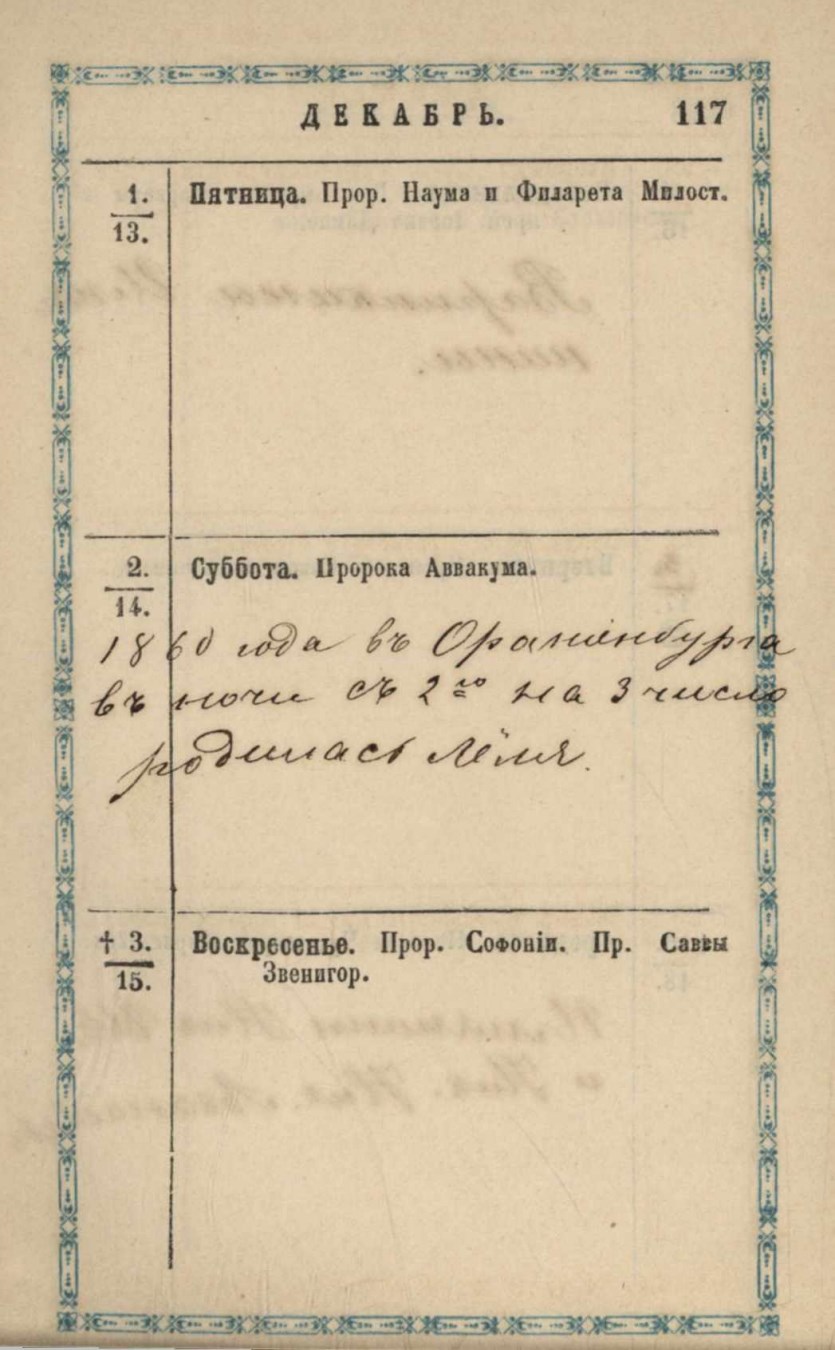 ДЕКАБРЬ. 117
1. Пятница. Прор. Наума и Филарета Милост.
13.
2. Суббота. Пророка Аввакума.
14.
1860 года въ Ораниенбурга
въ ночи съ 2го на 3 число
родилась Лёля.
† 3. Воскресенье. Прор. Софоніи. Пр. Саввы
15. Звенигор.